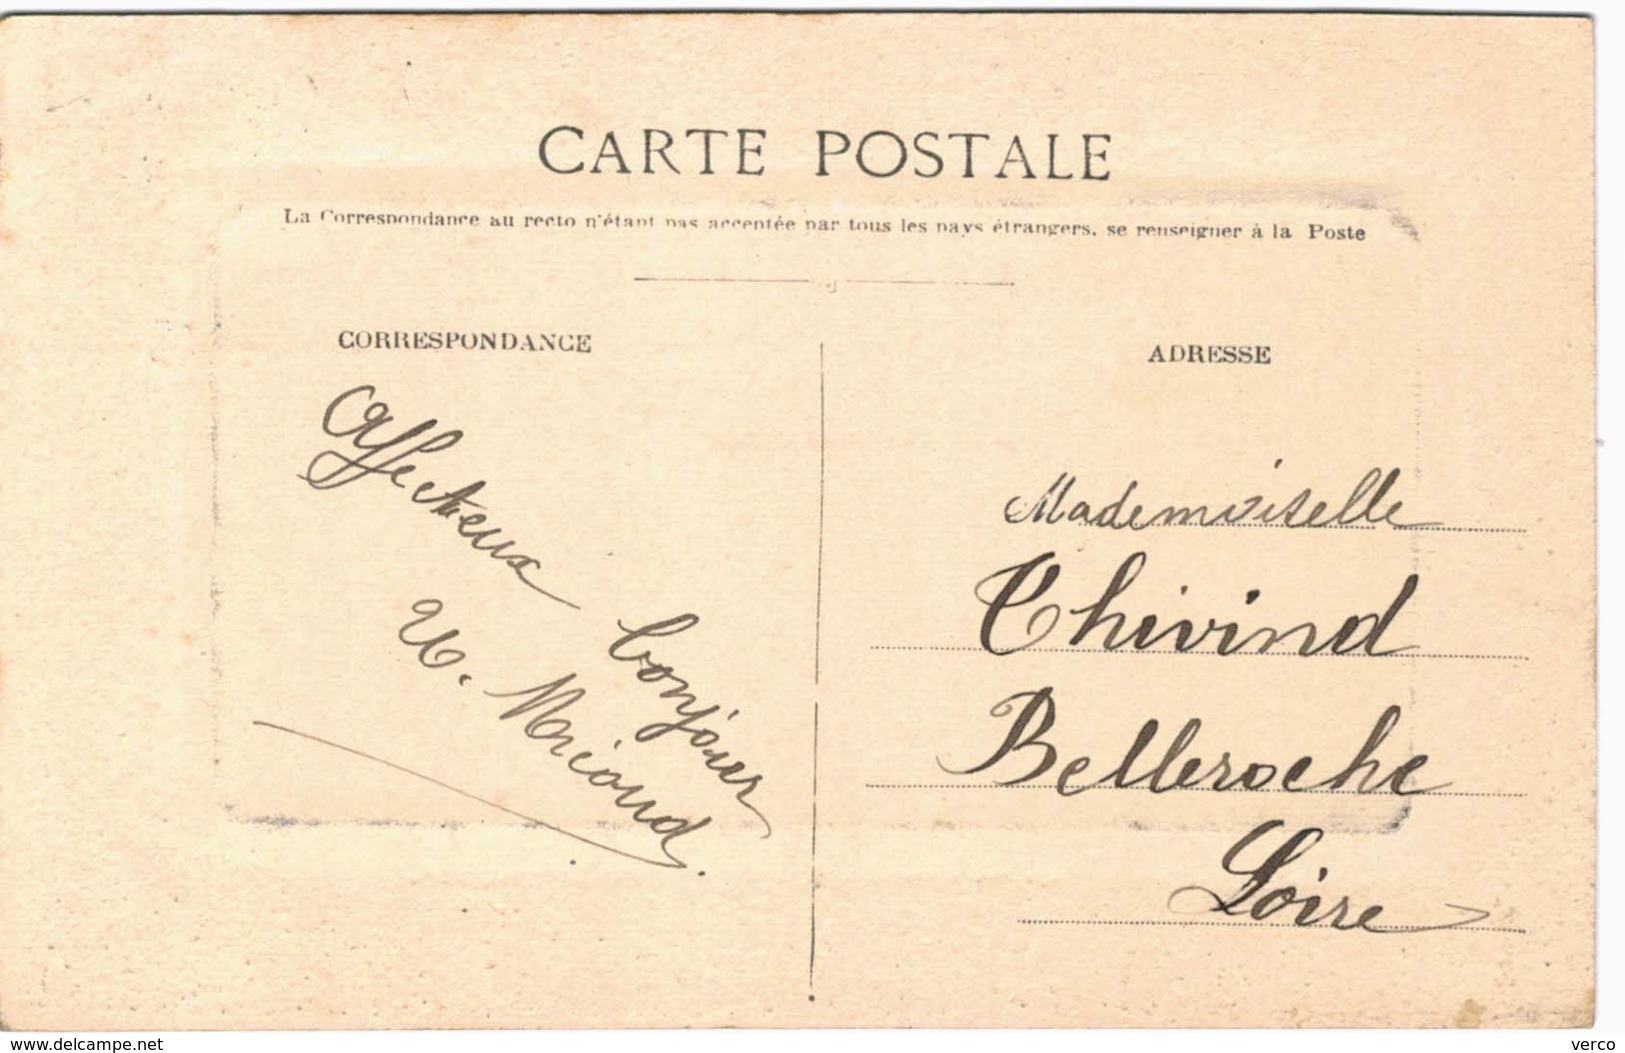 CARTE POSTALE
La Correspondance au recto n'étant pas acceptée par tous les pays étrangers, se renseigner à la Poste
CORRESPONDANCE
Affectueux bonjour
ADRESSE
Mademoiselle
Thivind
Belleroche
Loire
www.delcampe.net
verco